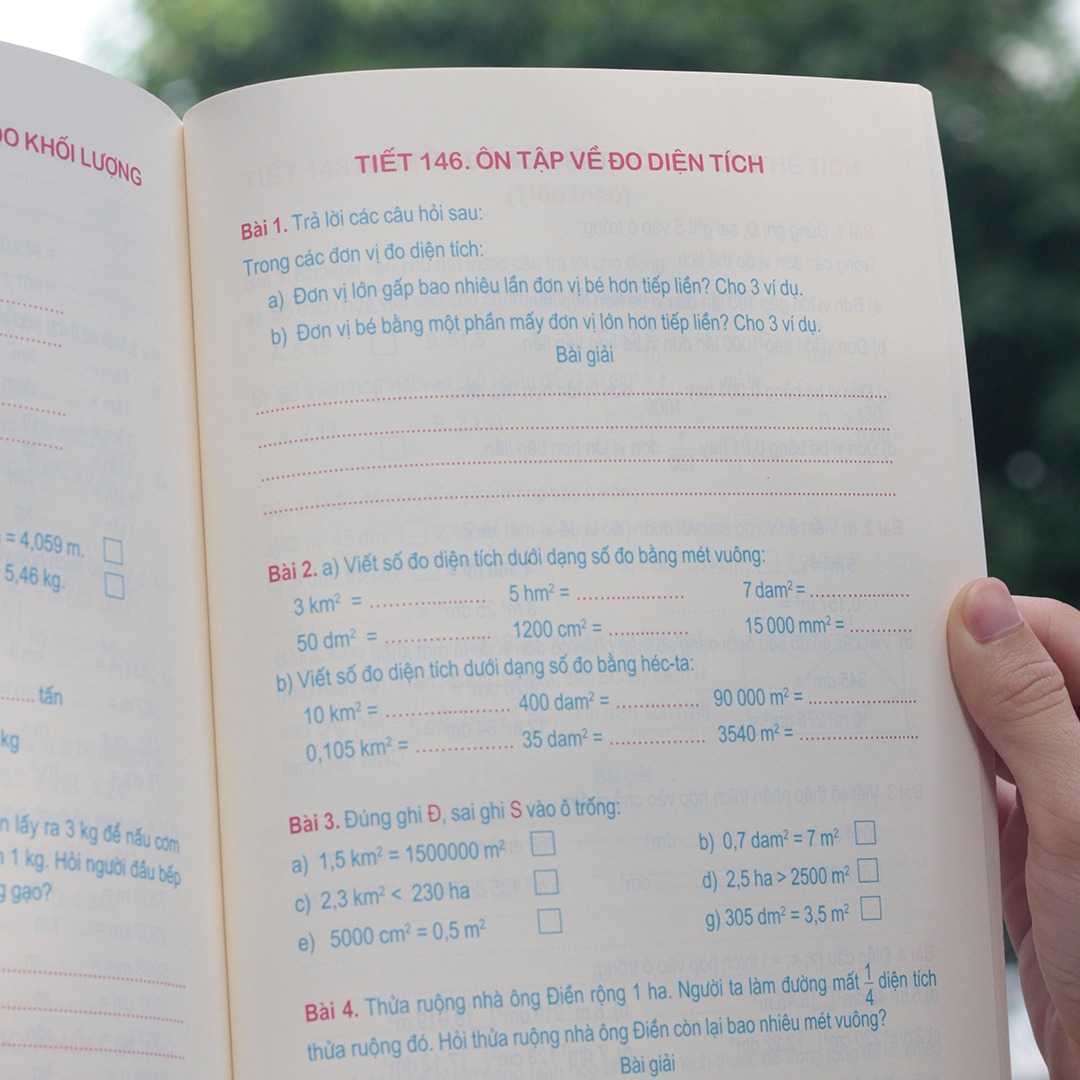 ĐO KHỐI LƯỢNG
= 4,059 m.
5,46 kg.
tấn
kg
lấy ra 3 kg để nấu cơm
1 kg. Hỏi người đầu bếp
gạo?
TIẾT 146. ÔN TẬP VỀ ĐO DIỆN TÍCH
Bài 1. Trả lời các câu hỏi sau:
Trong các đơn vị đo diện tích:
a) Đơn vị lớn gấp bao nhiêu lần đơn vị bé hơn tiếp liền? Cho 3 ví dụ.
b) Đơn vị bé bằng một phần mấy đơn vị lớn hơn tiếp liền? Cho 3 ví dụ.
Bài giải
Bài 2. a) Viết số đo diện tích dưới dạng số đo bằng mét vuông:
3 km² = .................... 5 hm² = .................... 7 dam² = ....................
50 dm² = .................... 1200 cm² = .................... 15 000 mm² = ....................
b) Viết số đo diện tích dưới dạng số đo bằng héc-ta:
10 km² = .................... 400 dam² = .................... 90 000 m² = ....................
0,105 km² = .................... 35 dam² = .................... 3540 m² = ....................
Bài 3. Đúng ghi Đ, sai ghi S vào ô trống:
a) 1,5 km² = 1500000 m² □ b) 0,7 dam² = 7 m² □
c) 2,3 km² < 230 ha □ d) 2,5 ha > 2500 m² □
e) 5000 cm² = 0,5 m² □ g) 305 dm² = 3,5 m² □
Bài 4. Thửa ruộng nhà ông Điền rộng 1 ha. Người ta làm đường mất 1/4 diện tích
thửa ruộng đó. Hỏi thửa ruộng nhà ông Điền còn lại bao nhiêu mét vuông?
Bài giải